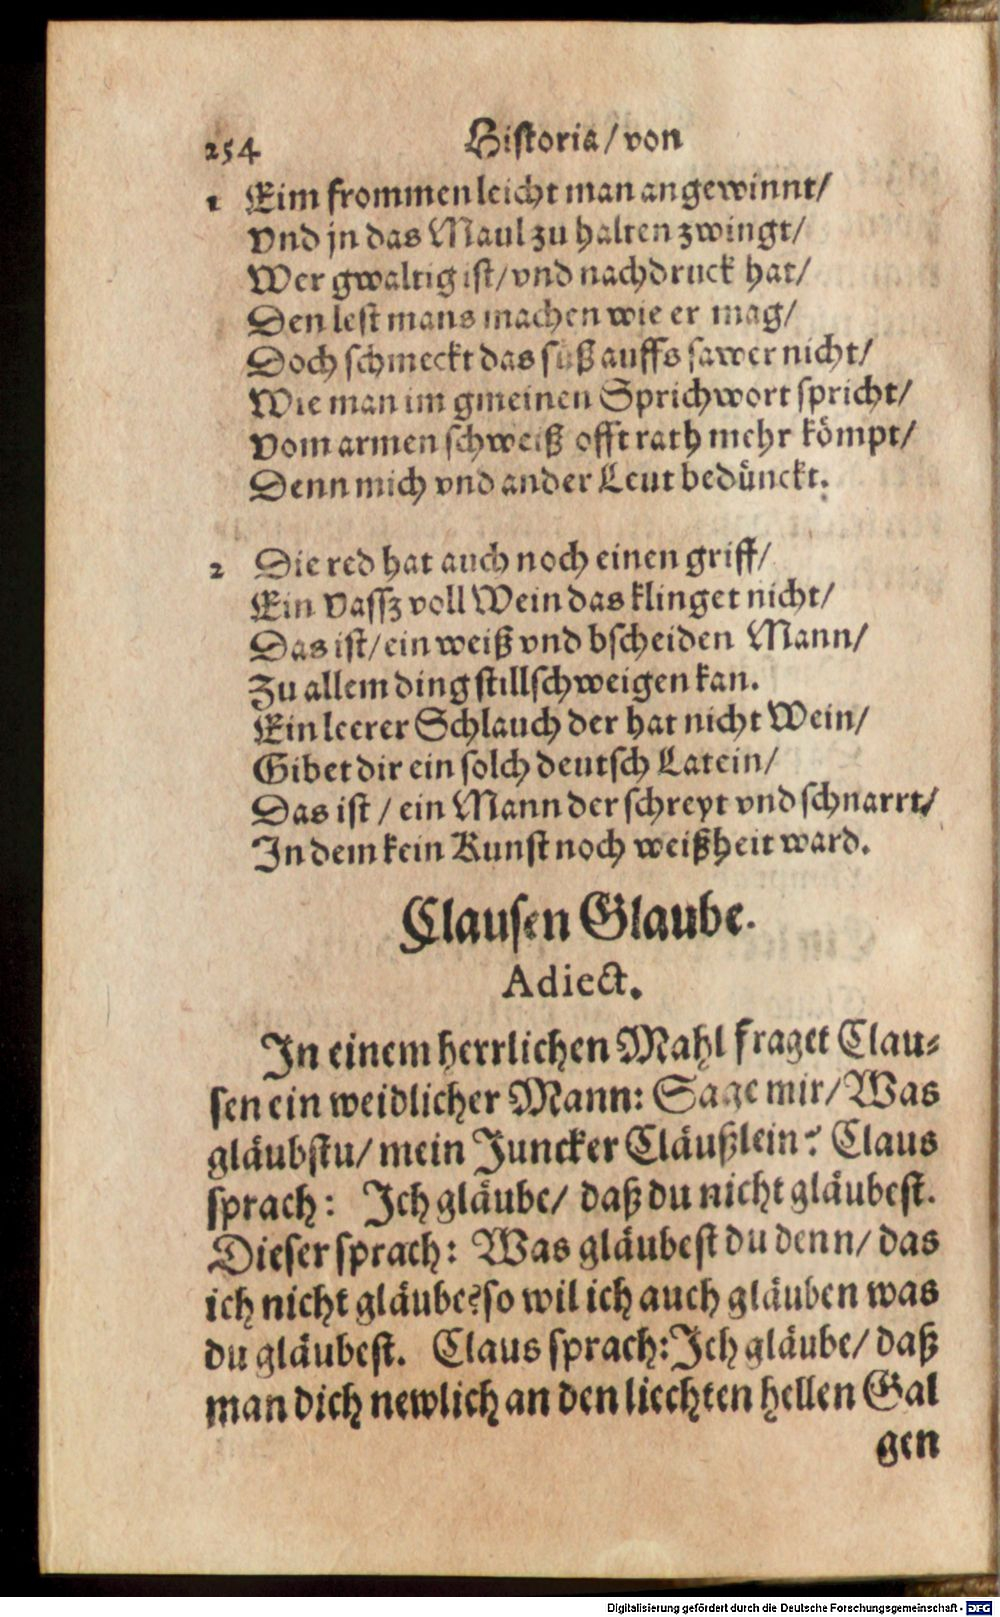 254 Historia/ von
1 Eim frommen leicht man angewinnt/
Vnd jn das Maul zu halten zwingt/
Wer gwaltig ist/ vnd nachdruck hat/
Den lest mans machen wie er mag/
Doch schmeckt das süß auffs sawer nicht/
Wie man im gmeinen Sprichwort spricht/
Vom armen schweiß offt rath mehr kömpt/
Denn mich vnd ander Leut bedünckt.
2 Die red hat auch noch einen griff/
Ein Vassz voll Wein das klinget nicht/
Das ist/ ein weiß vnd bscheiden Mann/
Zu allem ding stillschweigen kan.
Ein leerer Schlauch der hat nicht Wein/
Gibet dir ein solch deutsch Latein/
Das ist / ein Mann der schreyt vnd schnarrt/
In dem kein Kunst noch weißheit ward.
Clausen Glaube.
Adiect.
In einem herrlichen Mahl fraget Clau⸗
sen ein weidlicher Mann: Sage mir/ Was
gläubstu/ mein Juncker Cläußlein? Claus
sprach: Ich gläube/ daß du nicht gläubest.
Dieser sprach: Was gläubest du denn/ das
ich nicht gläube? so wil ich auch gläuben was
du gläubest. Claus sprach: Ich gläube/ daß
man dich newlich an den liechten hellen Gal
gen
Digitalisierung gefördert durch die Deutsche Forschungsgemeinschaft - DFG